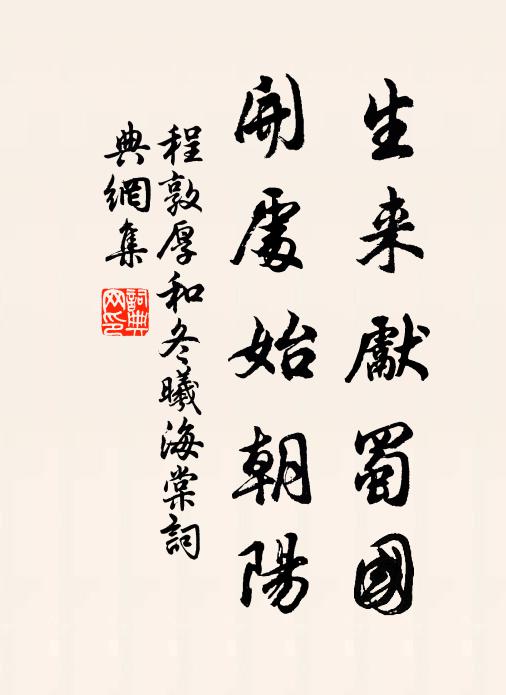 生来獻蜀國
開處始朝陽
程敦厚和冬曦海棠詞
典網集
詞典網印